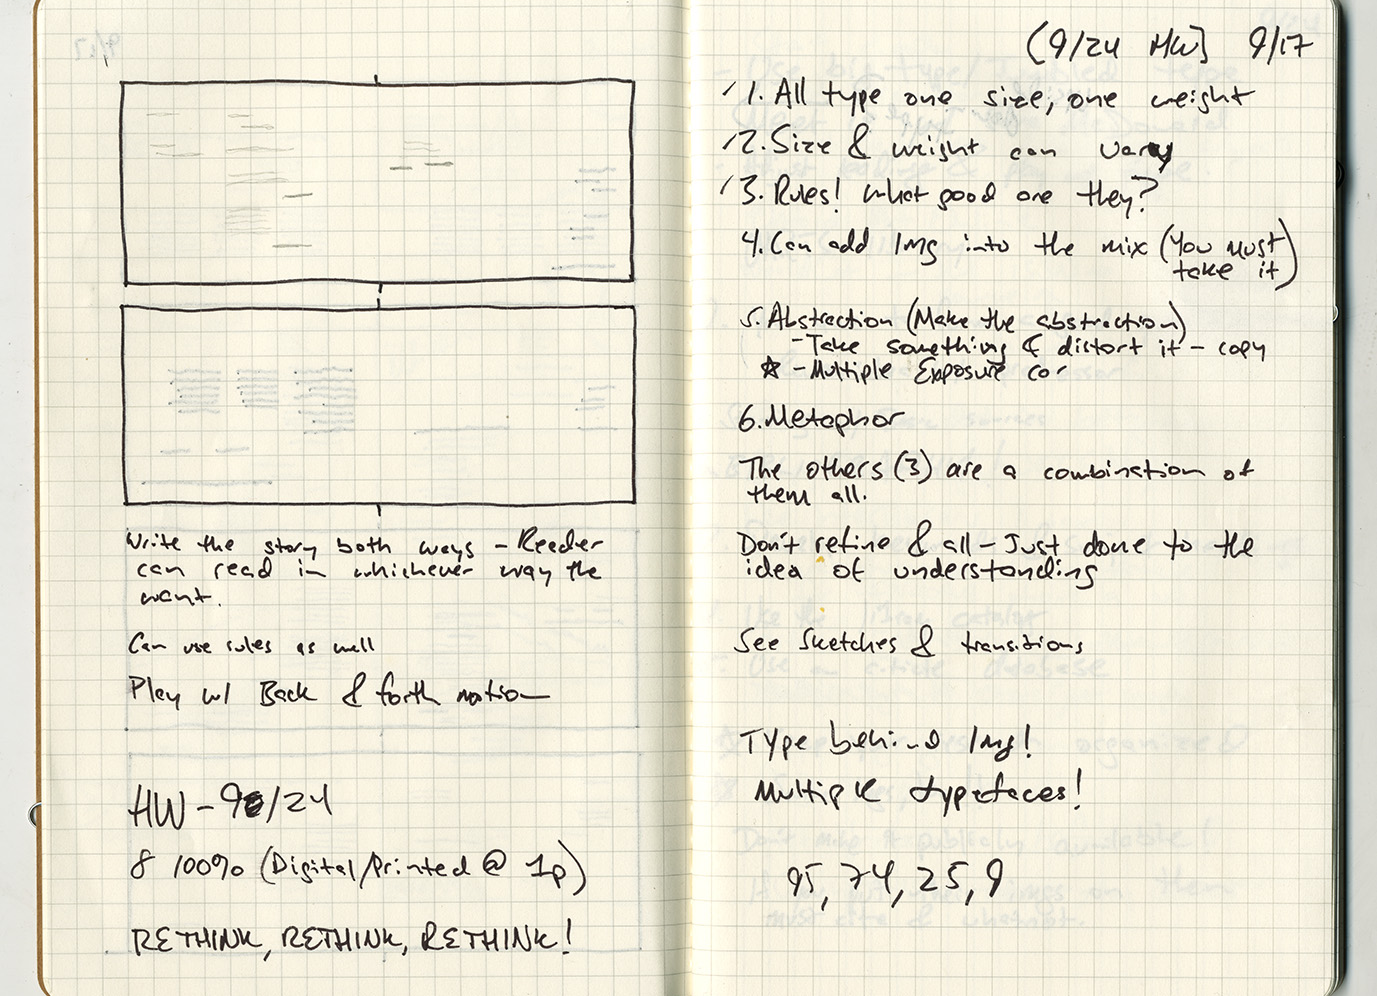 Write the story both ways – Reader
can read in whichever way the
want.
Can use rules as well
Play w/ Back & forth motion
HW – 9/24
8 100% (Digital/Printed @ 1p)
RETHINK, RETHINK, RETHINK!
[9/24 HW] 9/17
1. All type one size, one weight
2. Size & weight can vary
3. Rules! what good are they?
4. Can add Img into the mix (You must
take it)
5. Abstraction (Make the abstraction)
- Take something & distort it – copy
☆ - Multiple Exposure
6. Metaphor
The others (3) are a combination of
them all.
Don't refine & all – Just done to the
idea of understanding
See Sketches & transitions
Type behind Img!
Multiple typefaces!
95, 74, 25, 9